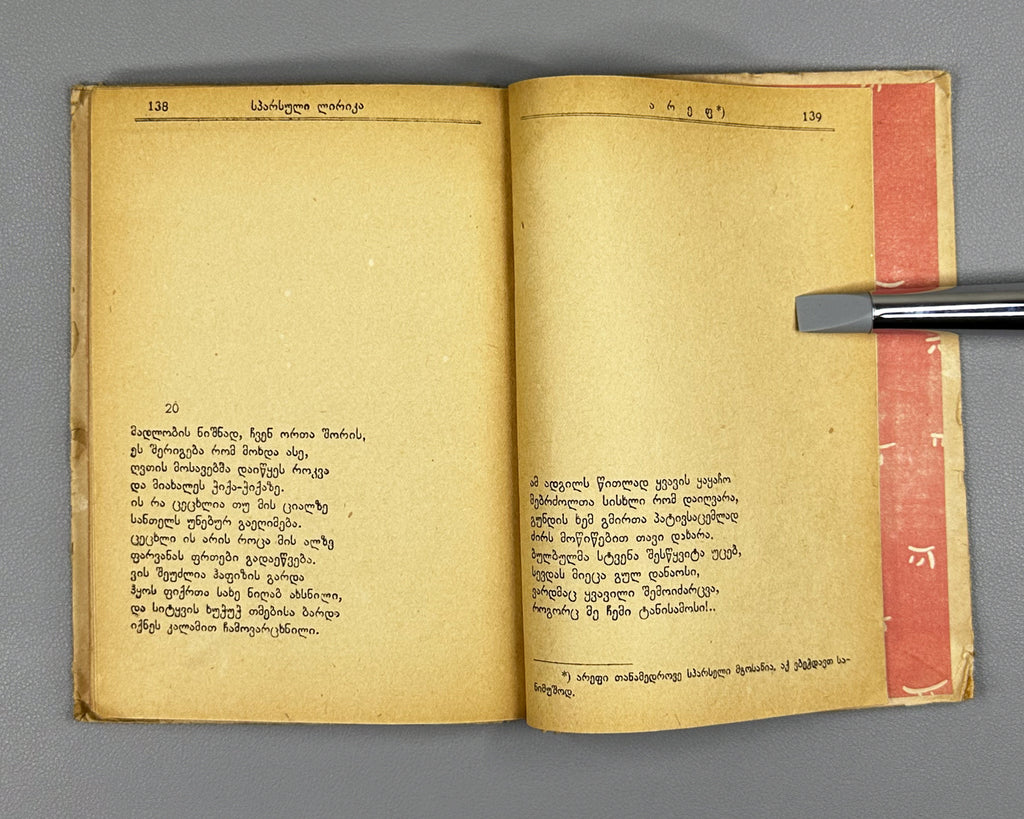 138
სპარსული ლირიკა
20
მადლობის ნიშნად, ჩვენ ორთა შორის,
ეს შერიგება რომ მოხდა ასე,
ღვთის მოსავებმა დაიწყეს როკვა
და მიახალეს ჭიქა-ჭიქაზე.
ის რა ცეცხლია თუ მის ციალზე
სანთელს უნებურ გაეღიმება.
ცეცხლი ის არის როცა მის ალზე
ფარვანას ფრთები გადაეწვება.
ვის შეუძლია ჰაფიზის გარდა
ჰყოს ფიქრთა სახე ნიღაბ ახსნილი,
და სიტყვის ხუჭუჭ თმებისა ბარდა
იქნეს კალამით ჩამოვარცხნილი.
არეფ*)
139
ამ ადგილს წითლად ყვავის ყაყაჩო
მებრძოლთა სისხლი რომ დაიღვარა,
გუნდის ხემ გმირთა პატივსაცემლად
ძირს მოწიწებით თავი დახარა.
ბულბულმა სტვენა შესწყვიტა უცებ,
სევდას მიეცა გულ დანაოსი,
ვარდმაც ყვავილი შემოიძარცვა,
როგორც მე ჩემი ტანისამოსი!..
*) არეფი თანამედროვე სპარსელი მგოსანია, აქ ვბეჭდავთ სა-
ნიმუშოდ.